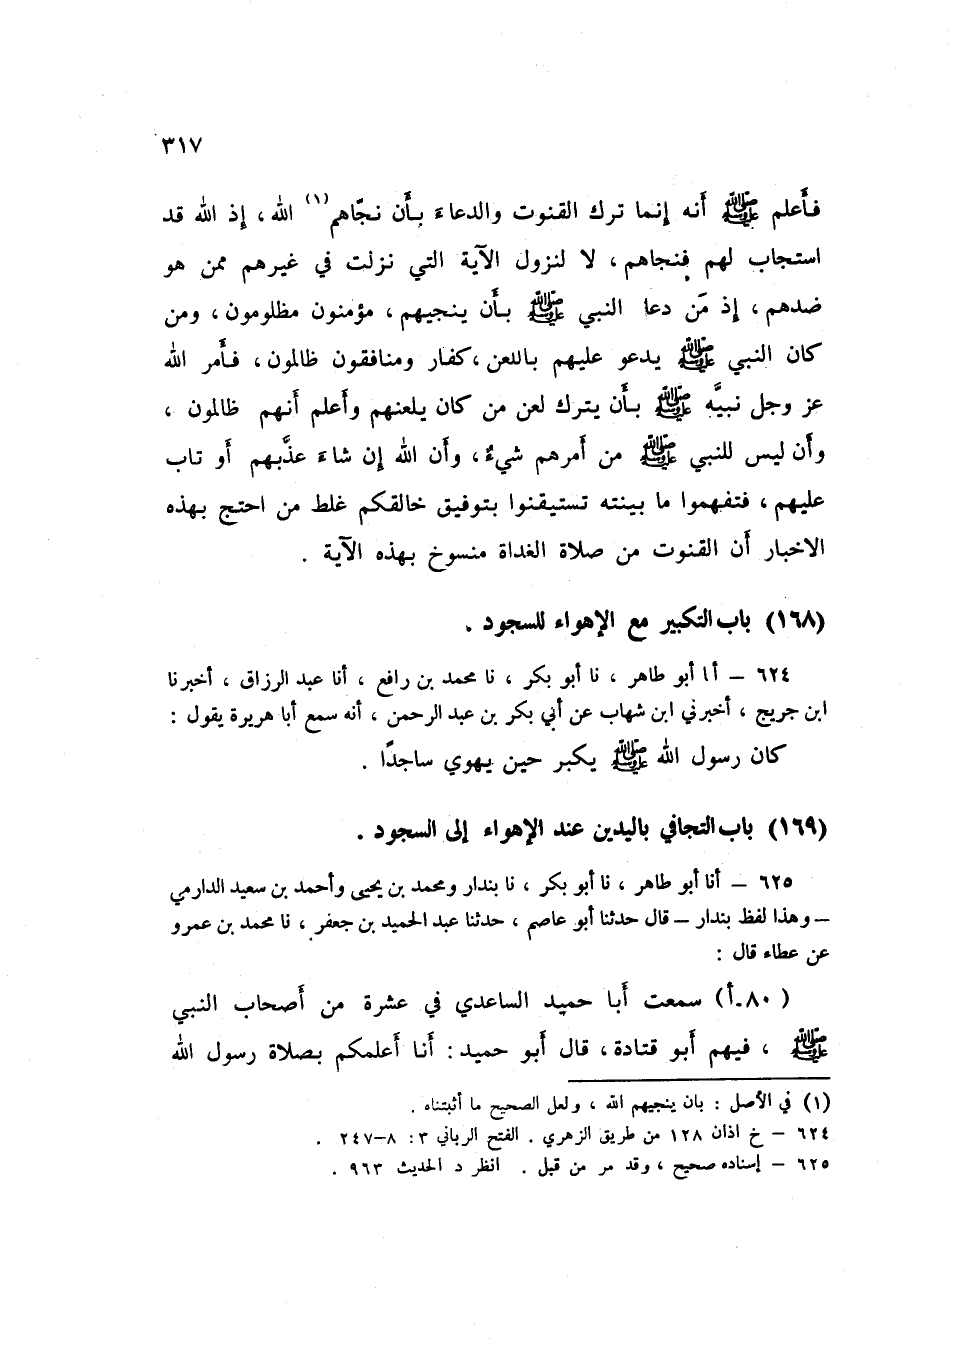 ٣١٧
فأعلم ﷺ أنه إنما ترك القنوت والدعاء بأن نجّاهم(١) الله، إذ الله قد
استجاب لهم فنجاهم، لا لنزول الآية التي نزلت في غيرهم ممن هو
ضدهم، إذ مَن دعا النبي ﷺ بأن ينجيهم، مؤمنون مظلومون، ومن
كان النبي ﷺ يدعو عليهم باللعن، كفار ومنافقون ظالمون، فأمر الله
عز وجل نبيَّه ﷺ بأن يترك لعن من كان يلعنهم وأعلم أنهم ظالمون ،
وأن ليس للنبي ﷺ من أمرهم شيءٌ، وأن الله إن شاء عذَّبهم أو تاب
عليهم، فتفهموا ما بينته تستيقنوا بتوفيق خالقكم غلط من احتج بهذه
الاخبار أن القنوت من صلاة الغداة منسوخ بهذه الآية .
(١٦٨) باب التكبير مع الإهواء للسجود .
٦٢٤ – أنا أبو طاهر ، نا أبو بكر ، نا محمد بن رافع ، أنا عبد الرزاق ، أخبرنا
ابن جريج ، أخبرني ابن شهاب عن أبي بكر بن عبد الرحمن ، أنه سمع أبا هريرة يقول :
كان رسول الله ﷺ يكبر حين يهوي ساجدًا .
(١٦٩) باب التجافي باليدين عند الإهواء إلى السجود .
٦٢٥ – أنا أبو طاهر ، نا أبو بكر ، نا بندار ومحمد بن يحيى وأحمد بن سعيد الدارمي
– وهذا لفظ بندار – قال حدثنا أبو عاصم ، حدثنا عبد الحميد بن جعفر ، نا محمد بن عمرو
عن عطاء قال :
(٨٠-أ) سمعت أبا حميد الساعدي في عشرة من أصحاب النبي
ﷺ ، فيهم أبو قتادة، قال أبو حميد: أنا أعلمكم بصلاة رسول الله
(١) في الأصل : بان ينجيهم الله ، ولعل الصحيح ما أثبتناه .
٦٢٤ – خ اذان ١٢٨ من طريق الزهري . الفتح الرباني ٣: ٨–٢٤٧ .
٦٢٥ – إسناده صحيح ، وقد مر من قبل . انظر د الحديث ٩٦٣ .